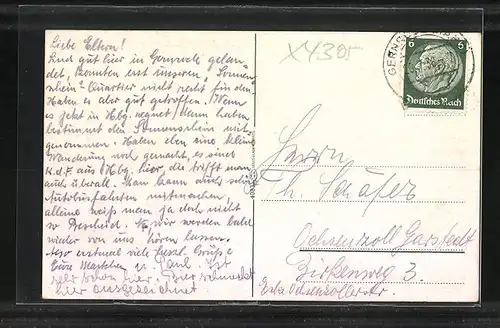 Liebe Eltern!
Sind gut hier in Gernrode gelan-
det, konnten erst unseren "Sonnen-
schein"-Quartier nicht recht finden
Haben es aber gut getroffen. Wenn
es jetzt in Hbg. regnet! Wir haben
bestimmt den Sonnenschein mit-
genommen. Haben eben eine kleine
Wanderung noch gemacht, es sind
K.d.F. aus Hbg. hier, die trifft man
auch überall. Man kann auch sehr
Autobusfahrten mitmachen,
alleine weiß man ja doch nicht
so Bescheid. Wir werden bald
wieder von uns hören lassen.
Also erstmal viele herzl. Grüße
Eure u. Paul. Ist
sehr schön hier. Bier schmeckt
hier ausgezeichnet
X4305
GERNRODE
6 6
Deutsches Reich
Herrn
Th. Schäfer
Ochsenzoll Garstedt
Birkenweg 3.
Ecke Ochsenzollerstr.